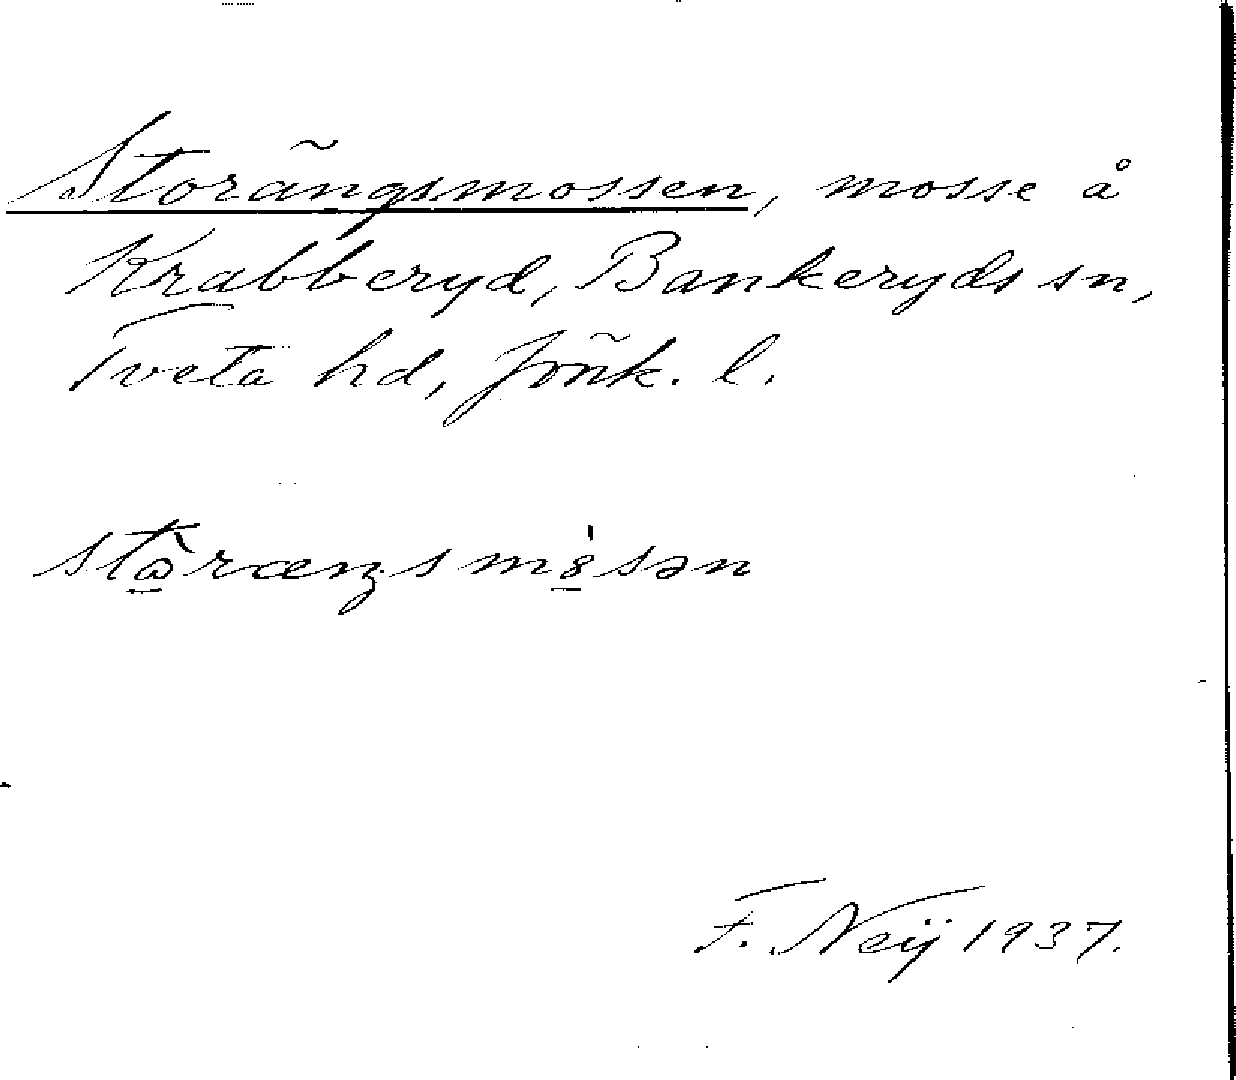 Storängsmossen, mosse å
Krabberyd, Bankeryds sn,
Tveta hd, Jönk. l.
F. Neij 1937.